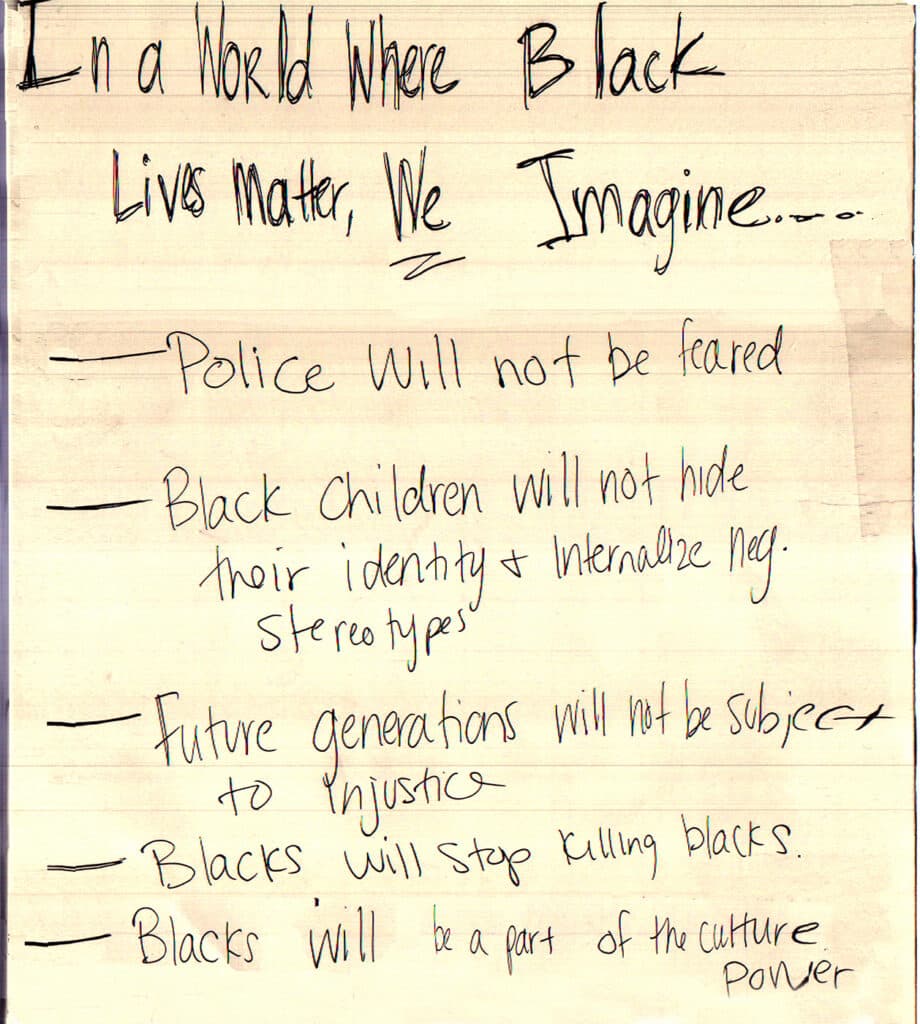 In a World Where Black
Lives Matter, We Imagine.....
— Police will not be feared
— Black Children will not hide
their identity + Internalize neg.
stereotypes
— Future generations will not be subject
to injustice
— Blacks will stop killing blacks.
— Blacks will be a part of the culture
power